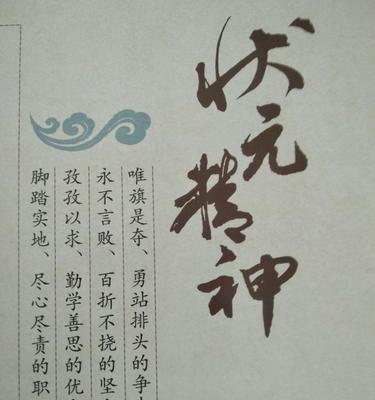 状元
精神
唯旗是夺、勇站排头的争
永不言败、百折不挠的坚
孜孜以求、勤学善思的优
脚踏实地、尽心尽责的职